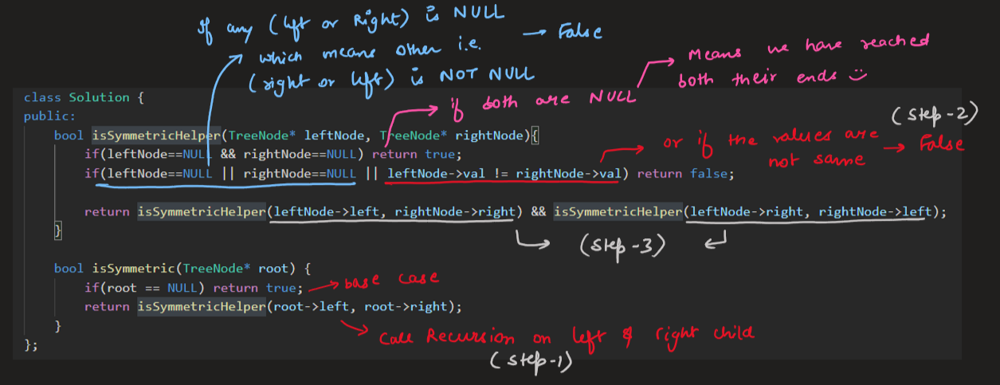 If any (left or Right) is NULL
which means other i.e. → False
(right or left) is NOT NULL
Means we have reached
both their ends
if both are NULL
(Step-2)
or if the values are
not same → False
class Solution {
public:
bool isSymmetricHelper(TreeNode* leftNode, TreeNode* rightNode){
if(leftNode==NULL && rightNode==NULL) return true;
if(leftNode==NULL || rightNode==NULL || leftNode->val != rightNode->val) return false;
return isSymmetricHelper(leftNode->left, rightNode->right) && isSymmetricHelper(leftNode->right, rightNode->left);
}
(Step-3)
bool isSymmetric(TreeNode* root) {
if(root == NULL) return true; → base case
return isSymmetricHelper(root->left, root->right);
}
};
Call Recursion on left & right child
(Step-1)